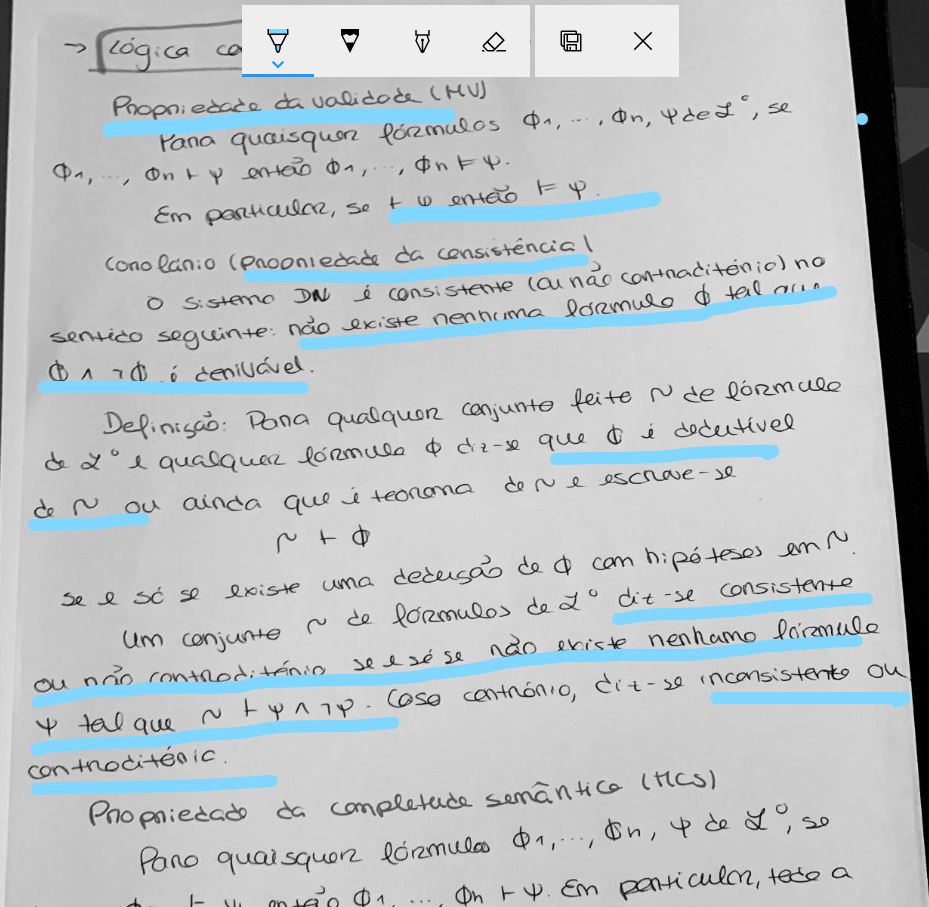 → Lógica co
Propriedade da validade (MV)
Para quaisquer fórmulas Φ1, ..., Φn, Ψ de L°, se
Φ1, ..., Φn ⊢ Ψ então Φ1, ..., Φn ⊨ Ψ.
Em particular, se ⊢ Ψ então ⊨ Ψ.
Corolário (Propriedade da consistência)
O sistema DN é consistente (ou não contraditório) no
sentido seguinte: não existe nenhuma fórmula Φ tal que
Φ ∧ ¬Φ é derivável.
Definição: Para qualquer conjunto feito ~ de fórmula
de L° e qualquer fórmula Φ diz-se que Φ é dedutível
de ~ ou ainda que é teorema de ~ e escreve-se
~ ⊢ Φ
se e só se existe uma dedução de Φ com hipóteses em ~.
Um conjunto ~ de fórmulas de L° diz-se consistente
ou não contraditório se e só se não existe nenhuma fórmula
Ψ tal que ~ ⊢ Ψ ∧ ¬Ψ. Caso contrário, diz-se inconsistente ou
contraditório.
Propriedade da completude semântica (MCS)
Para quaisquer fórmulas Φ1, ..., Φn, Ψ de L°, se
então Φ1, ..., Φn ⊢ Ψ. Em particular, toda a